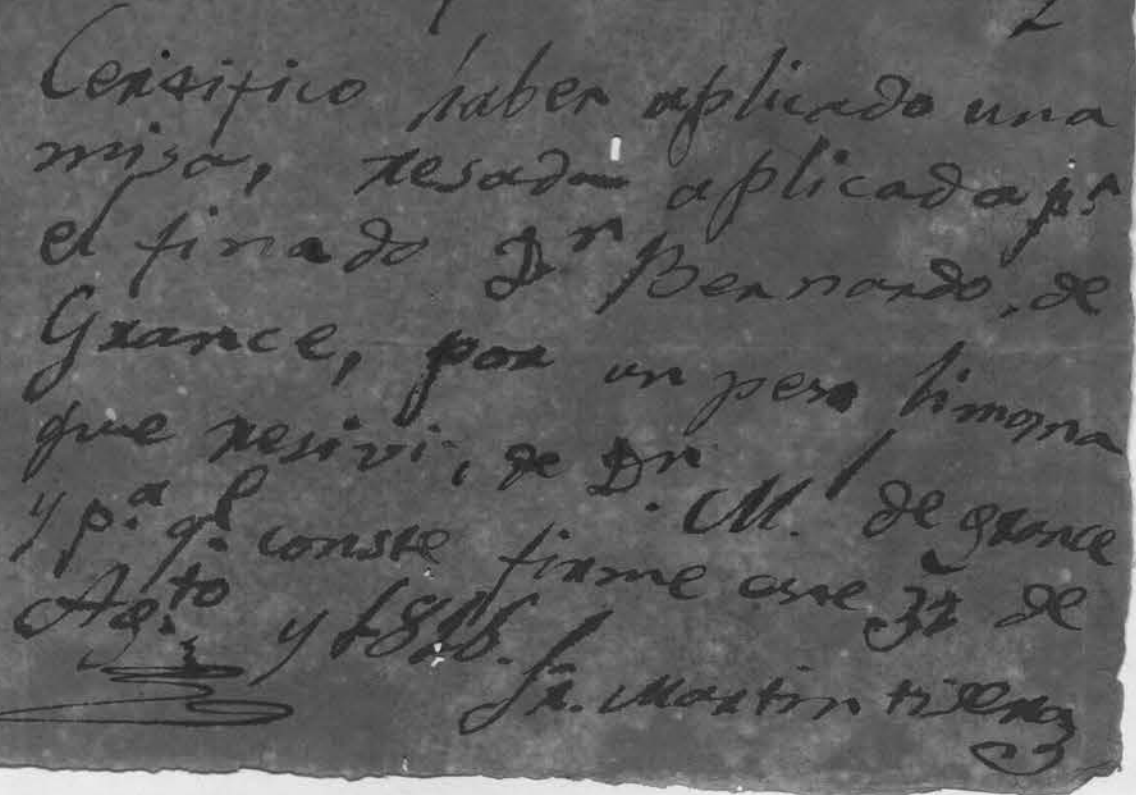 2
Certifico haber aplicado una
misa, resada aplicada p.r
el finado Dn Bernardo, de
Grance, por un peso limosna
que resivi, de Dn. M. de grance
y p.a q.e conste firme este 31 de
Ag.to y 1816.
Fr. Martin